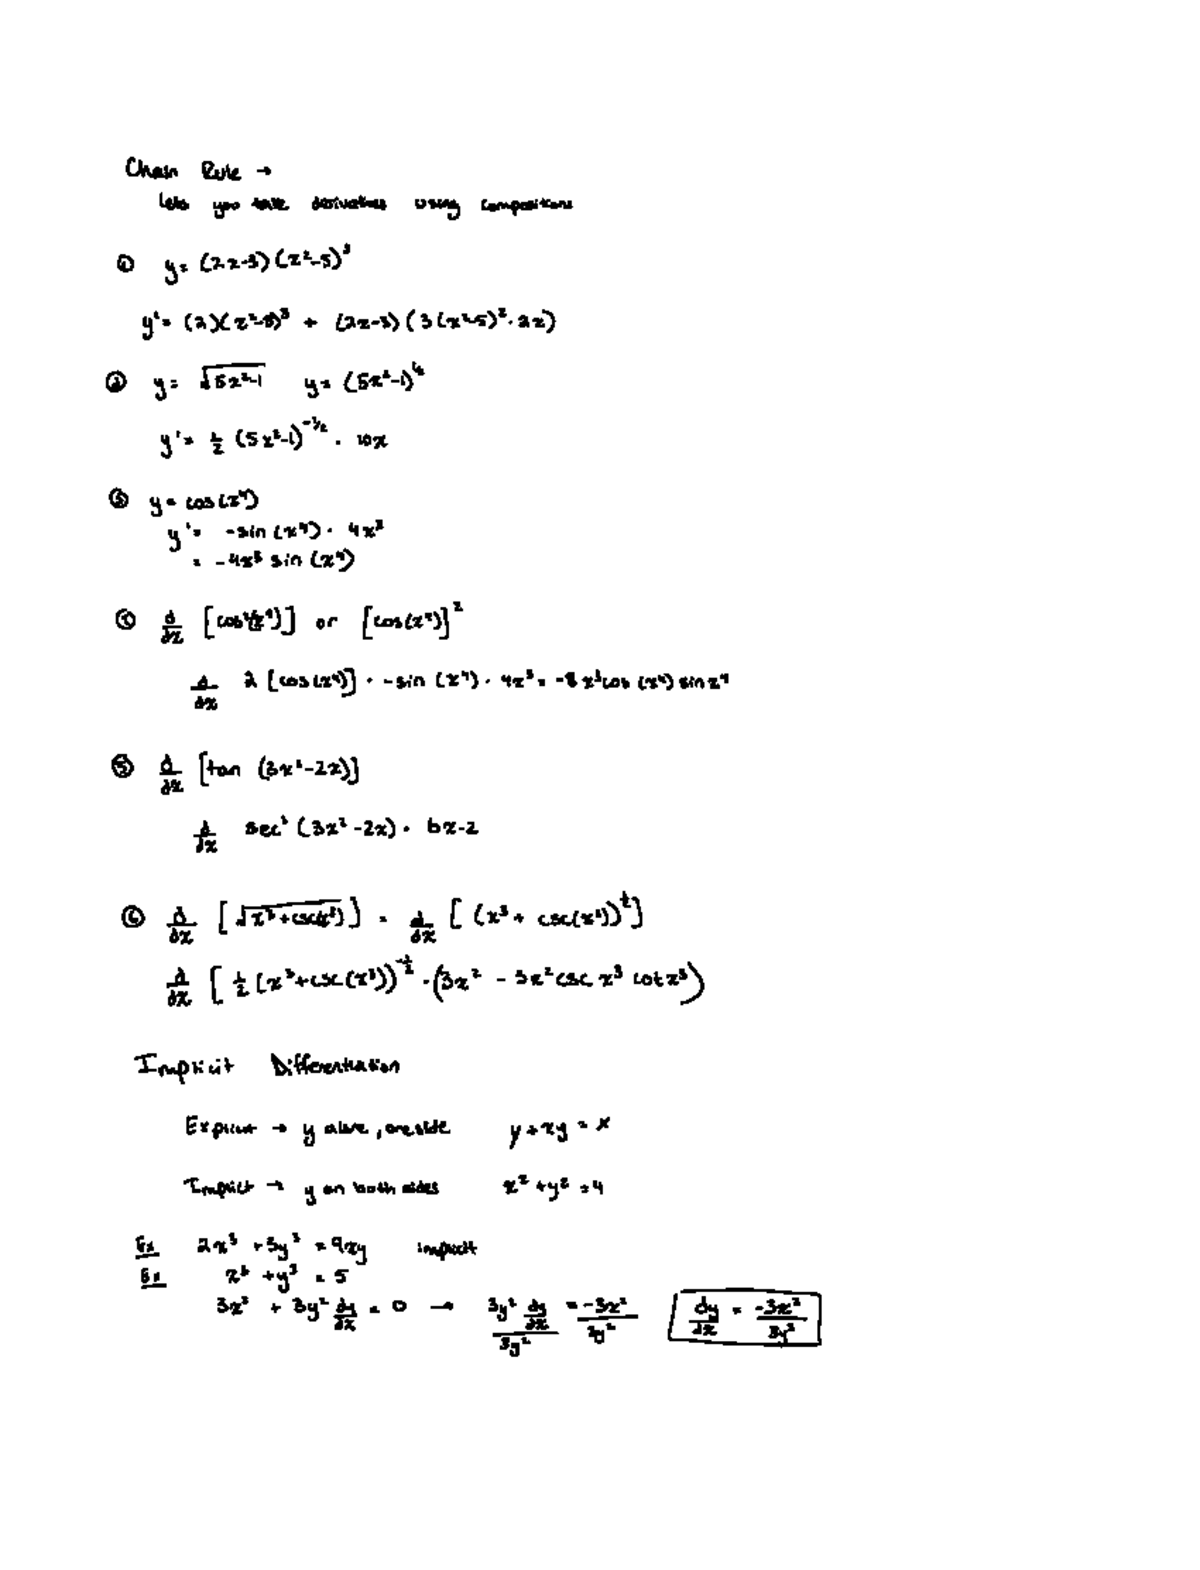 Chain Rule →
lets you take derivatives using compositions
① y = (2x-3)(x²-5)³
y' = (2)(x²-5)³ + (2x-3)(3(x²-5)²·2x)
② y = √5x²-1 y = (5x²-1)^½
y' = ½ (5x²-1)^-1/2 · 10x
③ y = cos(x⁴)
y' = -sin(x⁴) · 4x³
= -4x³ sin(x⁴)
④ d/dx [cos²(x⁴)] or [cos(x²)]²
d/dx 2[cos(x⁴)] · -sin(x⁴) · 4x³ = -8x³cos(x⁴)sinx⁴
⑤ d/dx [tan (3x²-2x)]
d/dx sec²(3x²-2x) · 6x-2
⑥ d/dx [√x³+csc(x³)] = d/dx [(x³+ csc(x³))^½]
d/dx [½(x³+csc(x³))^-½ · (3x² - 3x²csc x³ cotx³)
Implicit Differentiation
Explicit → y alone, one side y + xy = x
Implicit → y on both sides x² + y² = 4
Ex 2x³ + 3y³ = 9xy implicit
Ex x³ + y³ = 5
3x² + 3y² dy/dx = 0 → 3y² dy/dx / 3y² = -3x² / 3y² dy/dx = -3x² / 3y²